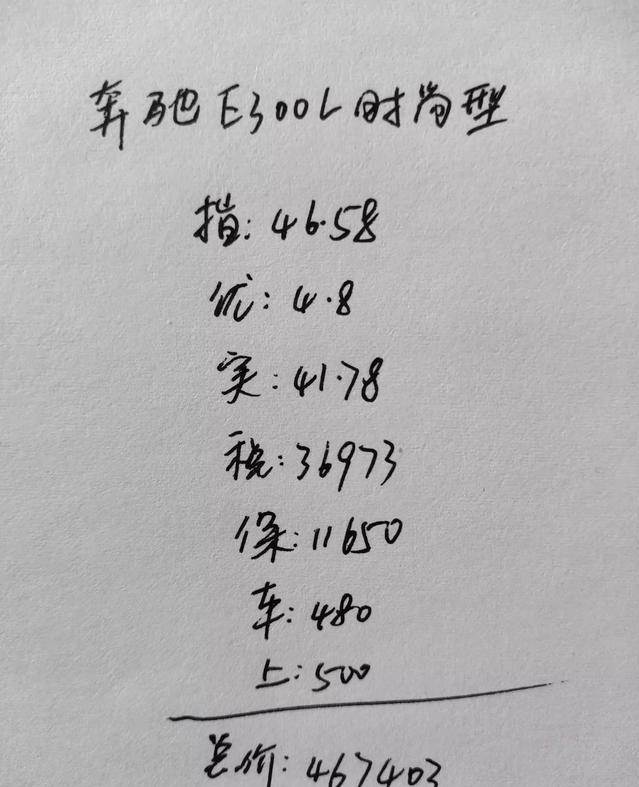 奔驰E300L时尚型
指:46.58
优:4.8
实:41.78
税:36973
保:11650
车:480
上:500
总价:467403